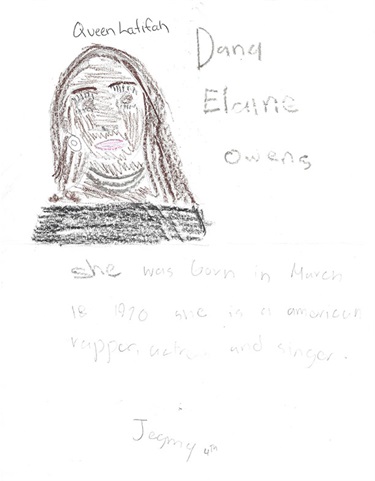 Queen Latifah
Dana
Elaine
Owens
she was born in March
18 1970 she is a american
rapper, actress and singer.
4th